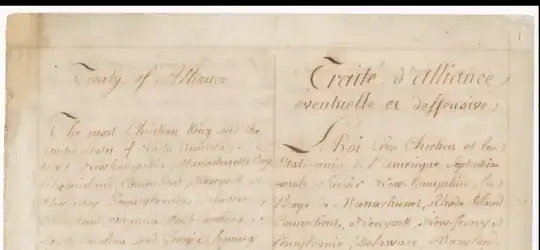 Treaty of Alliance
The most Christian King and the
United States of North America,
New hampshire, Massachusetts Bay
Connecticut, Newyork
Pennsylvania, Delaware
Carolina and Georgia, having
Traité d'alliance
eventuelle et deffensive
Le Roi très Chretien et les
Etats unis de l'amerique Septentrio
nale Savoir New hampshire, la
Baye de Massachuset, Rhode Island
Connecticut, Newyork, New-Jersey,
Pensylvanie, Delaware, Maryland,